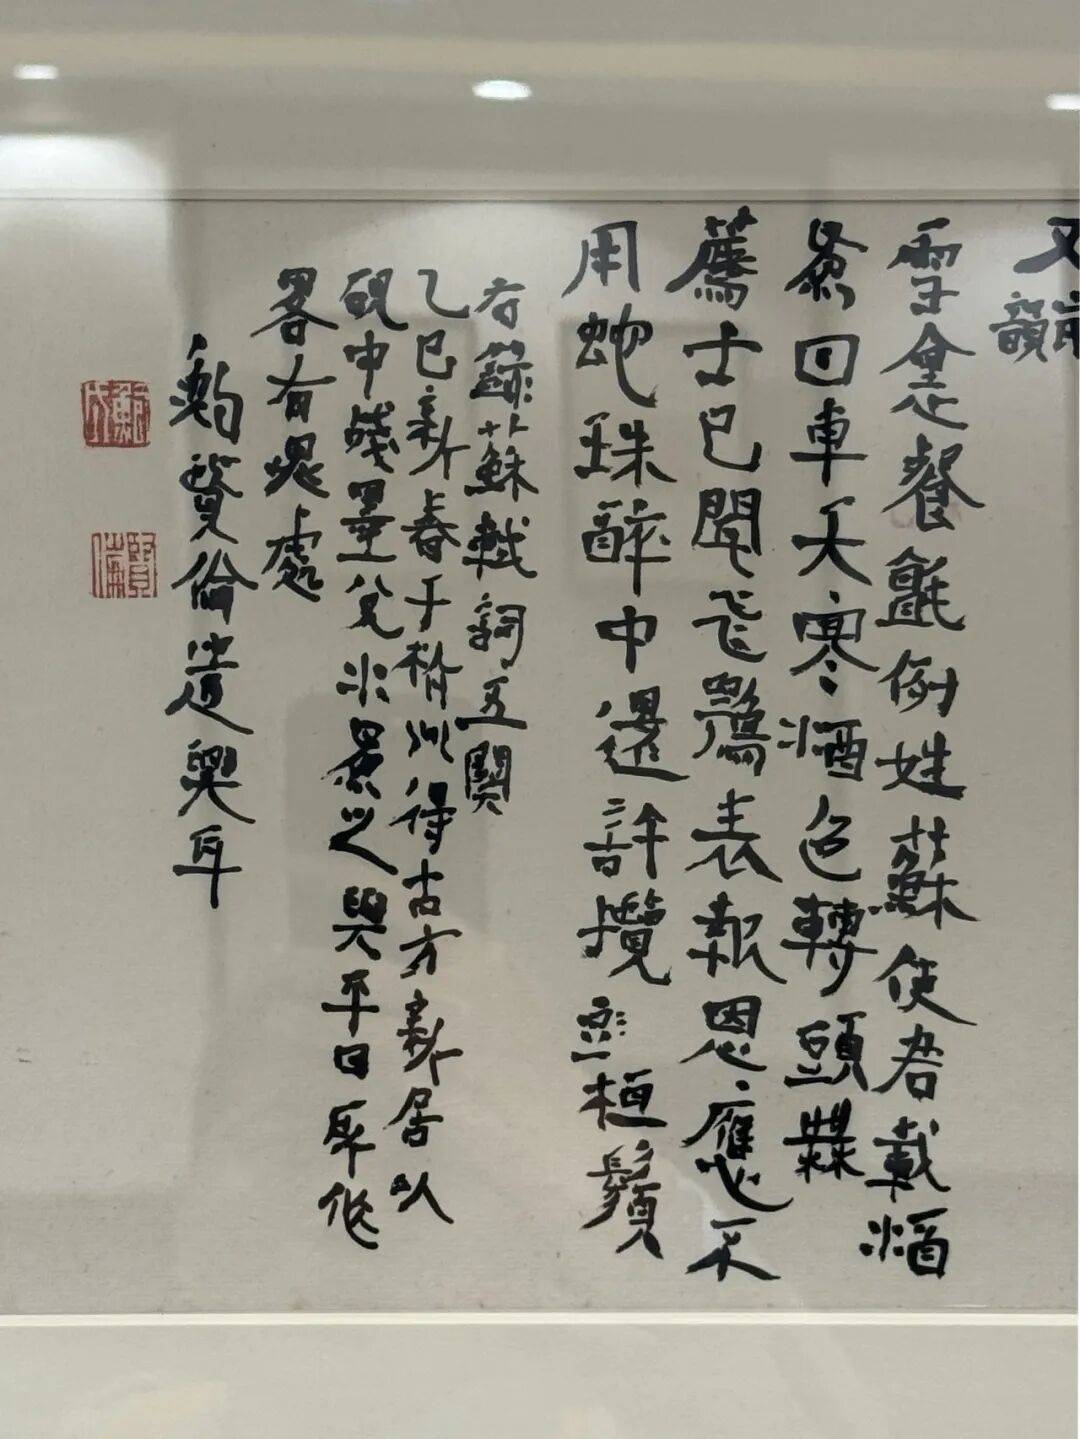 又前韻
雪裏餐氈例姓蘇使君載酒
為回車天寒酒色轉頭無
薦士已聞飛鶚表報恩應不
用蛇珠醉中還許攬桓鬚
右錄蘇軾詞五闋
乙巳新春于州得古方新居以
硯中殘墨兌水為之與平日所作
畧有異處
賢倫遣興耳